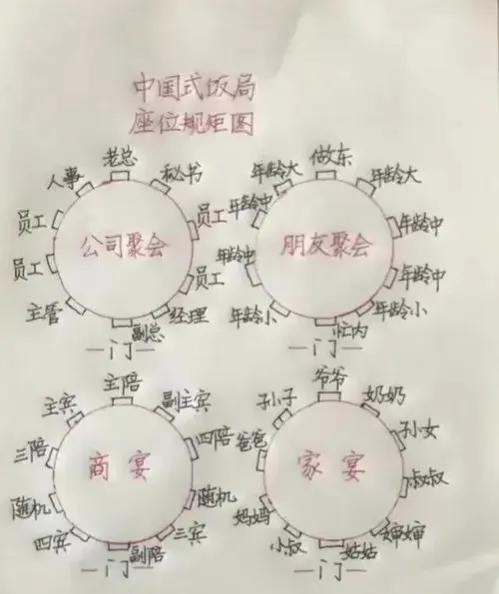 中国式饭局
座位规矩图
公司聚会
老总
秘书
员工
员工
经理
副总
主管
员工
员工
人事
一门一
朋友聚会
做东
年龄大
年龄中
年龄中
年龄小
忙内
年龄小
年龄中
年龄中
年龄大
一门一
商宴
主陪
副主宾
四陪
随机
三宾
副陪
四宾
随机
三陪
主宾
一门一
家宴
爷爷
奶奶
孙女
叔叔
婶婶
姑姑
小叔
妈妈
爸爸
孙子
一门一